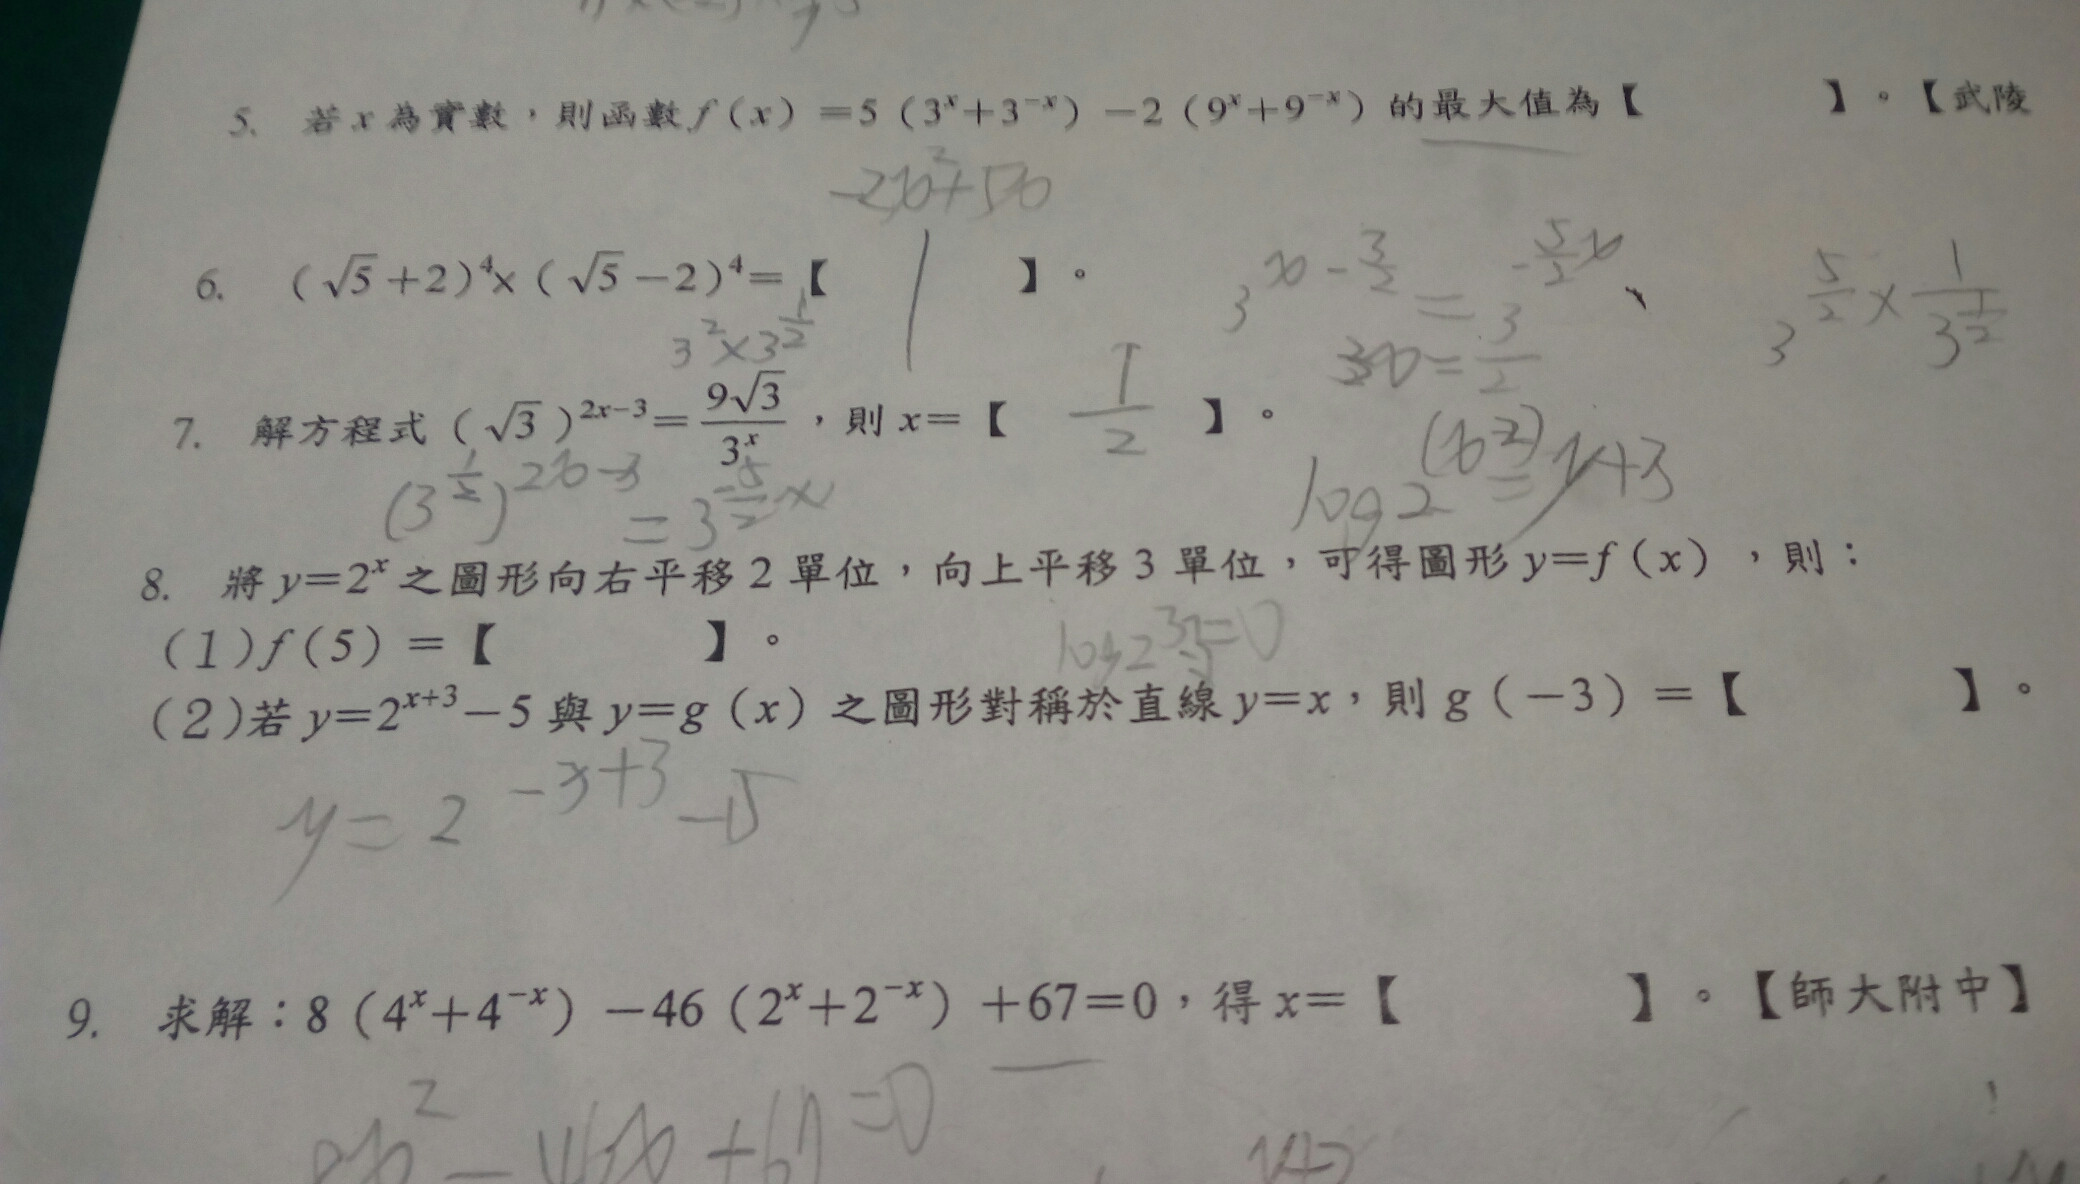 5. 若 x 為實數，則函數 f（x）＝5（3ˣ＋3⁻ˣ）－2（9ˣ＋9⁻ˣ）的最大值為【　　　】。【武陵
-2x²+5x
6. （√5＋2）⁴×（√5－2）⁴＝【 1 】。
3^(x-3/2) = 3^(-5/2 x)
3^(5/2) × 1/3^(1/2)
3² × 3^(1/2)
3x = 3/2
7. 解方程式（√3）^(2x－3)＝9√3/3ˣ，則 x＝【 1/2 】。
(3^(1/2))^(2x-3) = 3^(-5/2 x)
8. 將 y＝2ˣ 之圖形向右平移 2 單位，向上平移 3 單位，可得圖形 y＝f（x），則：
(1) f（5）＝【　　　】。
(2) 若 y＝2^(x＋3)－5 與 y＝g（x）之圖形對稱於直線 y＝x，則 g（－3）＝【　　　】。
y = 2^(-x+3) - 5
9. 求解：8（4ˣ＋4⁻ˣ）－46（2ˣ＋2⁻ˣ）＋67＝0，得 x＝【　　　】。【師大附中】
8x² - 46x + 67 = 0